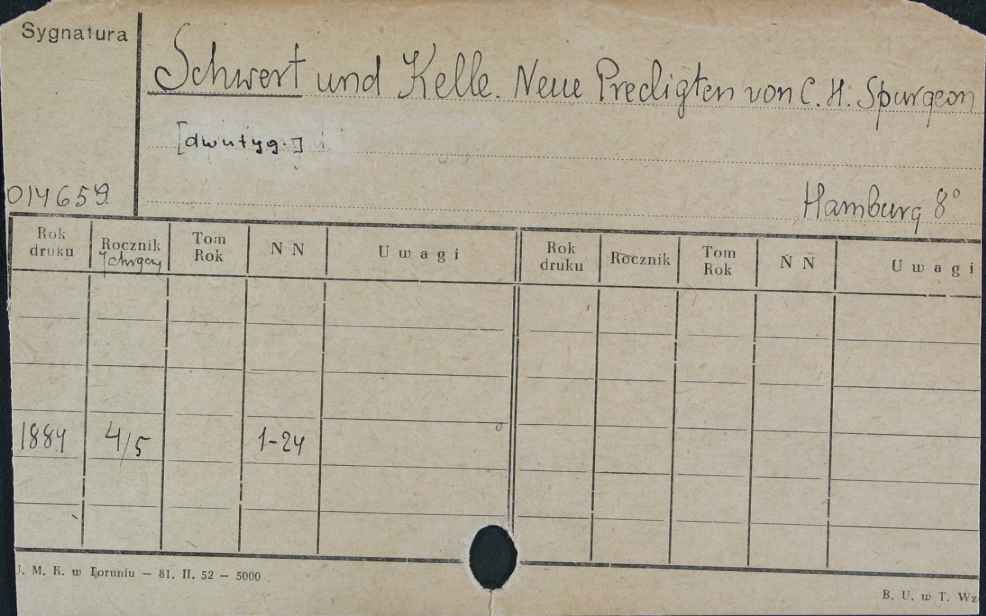 Sygnatura
Schwert und Kelle. Neue Predigten von C. H. Spurgeon
[dwutyg.]
014659
Hamburg 8°
Rok druku Rocznik Jahrgang Tom Rok N N Uwagi Rok druku Rocznik Tom Rok N N Uwagi
1884 4/5 1-24
U. M. K. w Toruniu — 81. II. 52 — 5000
B. U. w T. Wz